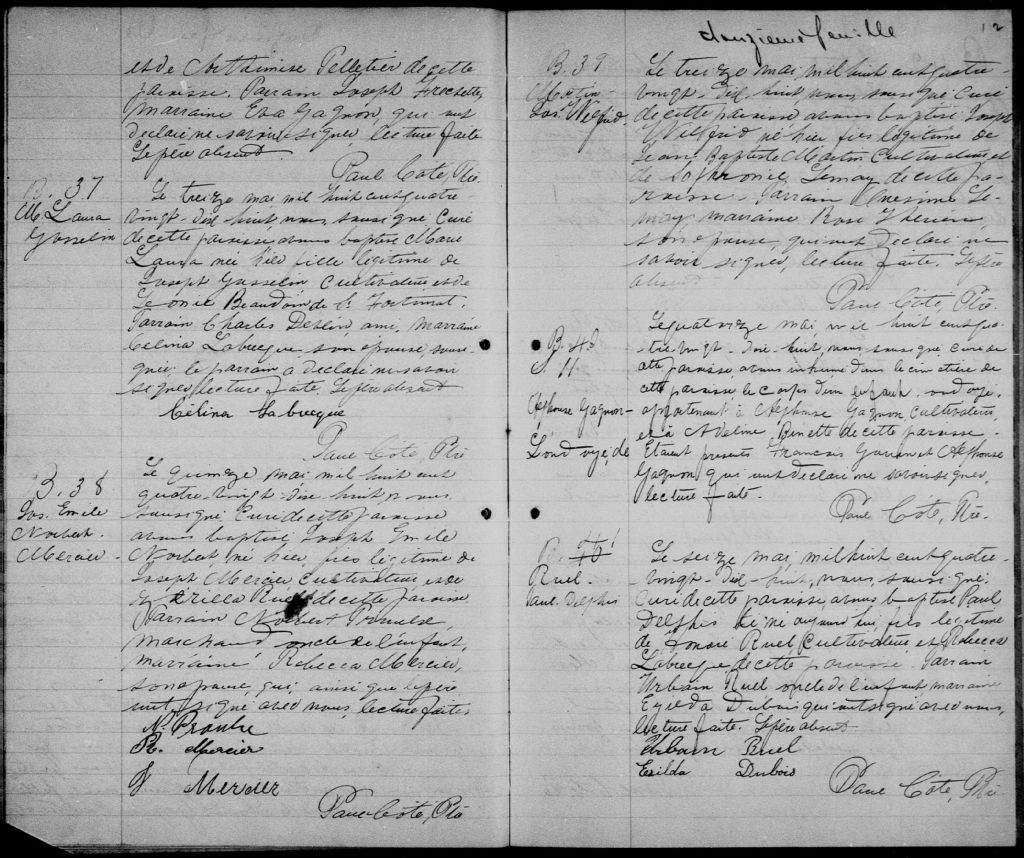 et de Arthimise Pelletier de cette
paroisse. Parrain Joseph Frechette,
Marraine Eva Gagnon, qui ont
déclaré ne savoir signer, lecture faite
Le père absent.
Paul Côté, Ptre
B. 37
M. Laura
Gosselin
Le treize mai mil huit cent quatre-
vingt-dix-huit, nous, soussigné Curé
de cette paroisse avons baptisé Marie
Laura née hier fille légitime de
Joseph Gosselin Cultivateur et de
Léonie Beaudoin de St Fortunat.
Parrain Charles Deblin ami, Marraine
Célina Labrecque son épouse, sous-
signée le parrain a déclaré ne savoir
signer, lecture faite. Le père absent
Célina Labrecque
Paul Côté, Ptre
B. 38
Jos. Emile
Norbert
Mercier
Le quinze mai mil-huit cent
quatre-vingt-dix-huit nous
soussigné Curé de cette paroisse
avons baptisé Joseph Emile
Norbert, né hier, fils légitime de
Joseph Mercier Cultivateur et de
Ruel de cette paroisse
Parrain Norbert Proulx,
marchand, oncle de l'enfant,
marraine Rebecca Mercier,
son épouse, qui, ainsi que le père
ont signé avec nous, lecture faite.
N. Proulx
R. Mercier
J Mercier
Paul Côté, Ptre
douzieme feuille
12
B. 39
Martin
Jos. Wilfrid
Le treize mai mil huit cent quatre-
vingt-dix-huit, nous, soussigné Curé
de cette paroisse avons baptisé Joseph
Wilfrid né hier fils légitime de
Jean Baptiste Martin Cultivateur et
de Sophronie Lemay de cette pa-
roisse. Parrain Onésime Le-
may marraine Rose Therien,
son épouse, qui ont déclaré ne
savoir signer, lecture faite. Le père
absent
Paul Côté, Ptre
S. 11.
Alphonse Gagnon
Le quatorze mai mil huit cent qua-
tre-vingt-dix-huit, nous, soussigné, Curé de
cette paroisse, avons inhumé dans le cimetière de
cette paroisse le corps d'un enfant ondoyé,
appartenant à Alphonse Gagnon, Cultivateur,
et à Adeline Binette de cette paroisse.
Etaient présents Francois Gagnon et Alphonse
Gagnon qui ont déclaré ne savoir signer,
lecture faite.
Paul Côté, Ptre.
B.
Ruel.
Paul. Delphis
Le seize mai, mil huit cent quatre-
vingt-dix-huit, nous, soussigné,
Curé de cette paroisse, avons baptisé Paul
Delphis né aujourd'hui, fils légitime
de Ruel, Cultivateur et Rebecca
Labrecque de cette paroisse. Parrain
Urbain Ruel oncle de l'enfant marraine
Exilda Dubois qui ont signé avec nous,
lecture faite. Le père absent
Urbain Ruel
Exilda Dubois
Paul Côté, Ptre